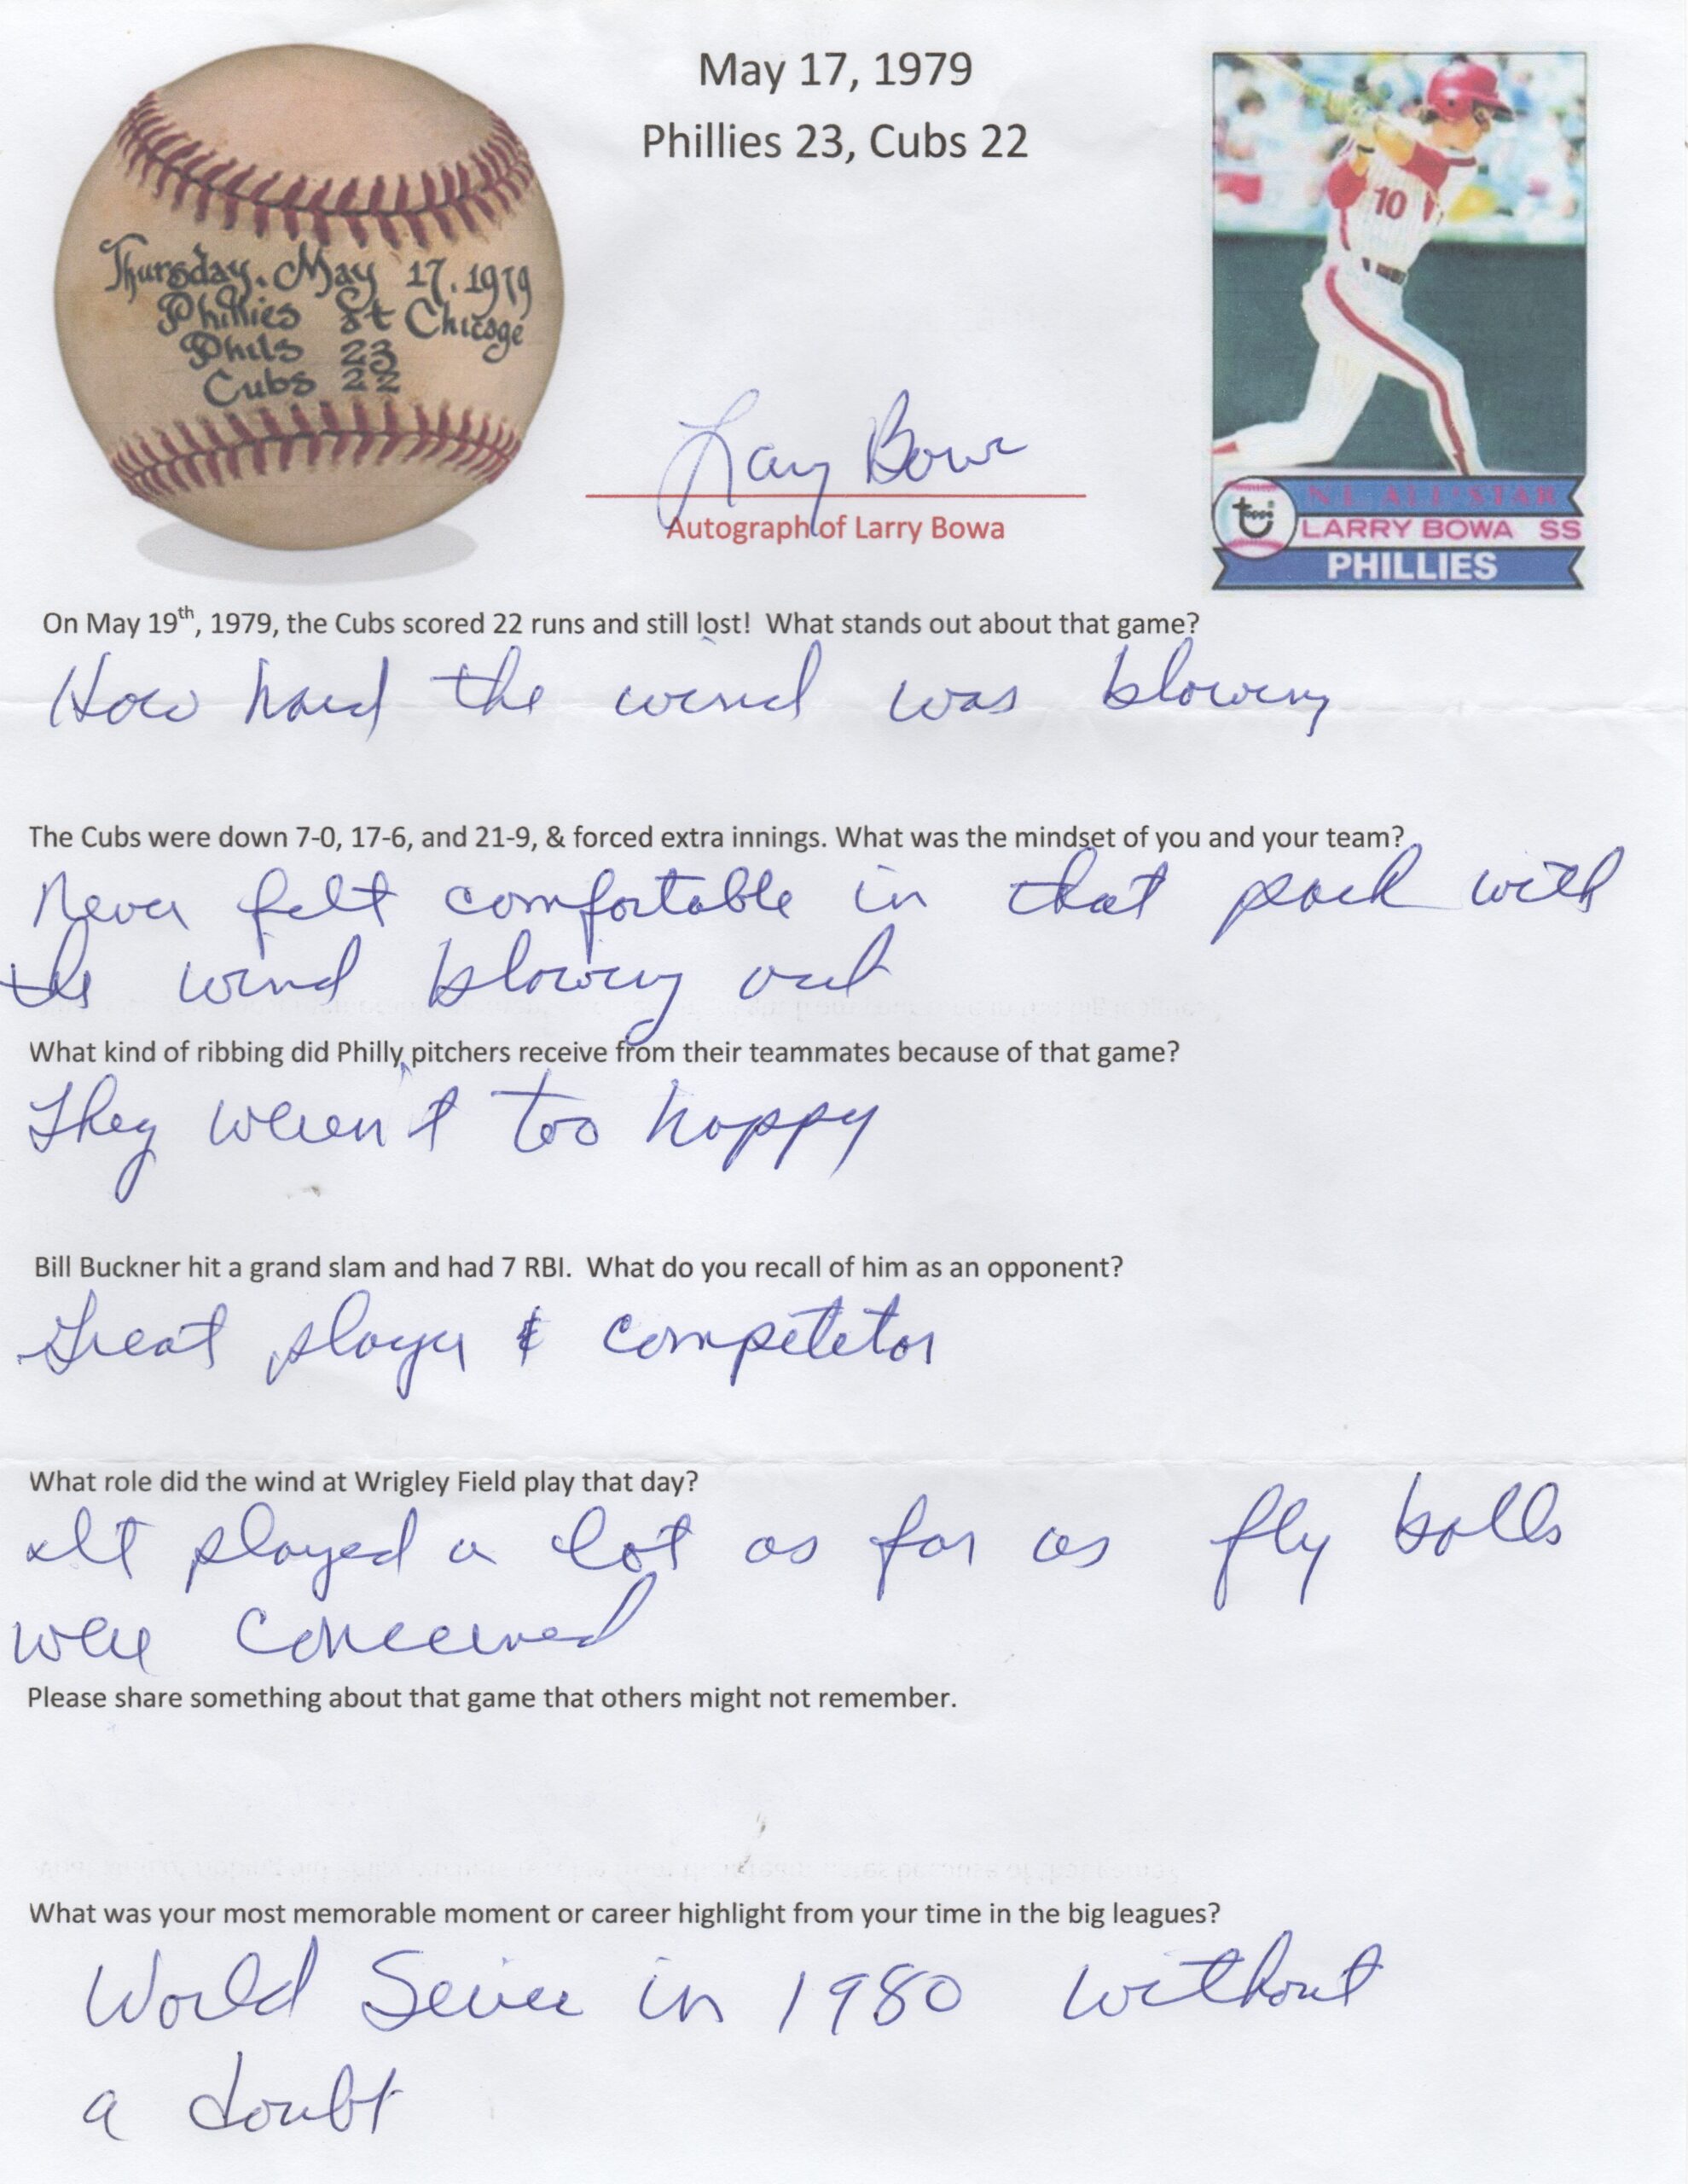 May 17, 1979
Phillies 23, Cubs 22
Thursday. May 17. 1979
Phillies at Chicago
Phils 23
Cubs 22
Larry Bowa
Autograph of Larry Bowa
10
N.L. ALL-STAR
topps
LARRY BOWA SS
PHILLIES
On May 19th, 1979, the Cubs scored 22 runs and still lost! What stands out about that game?
How hard the wind was blowing
The Cubs were down 7-0, 17-6, and 21-9, & forced extra innings. What was the mindset of you and your team?
Never felt comfortable in that park with
the wind blowing out
What kind of ribbing did Philly pitchers receive from their teammates because of that game?
They weren't too happy
Bill Buckner hit a grand slam and had 7 RBI. What do you recall of him as an opponent?
Great player & competetor
What role did the wind at Wrigley Field play that day?
It played a lot as far as fly balls
were concerned
Please share something about that game that others might not remember.
What was your most memorable moment or career highlight from your time in the big leagues?
World Series in 1980 without
a doubt